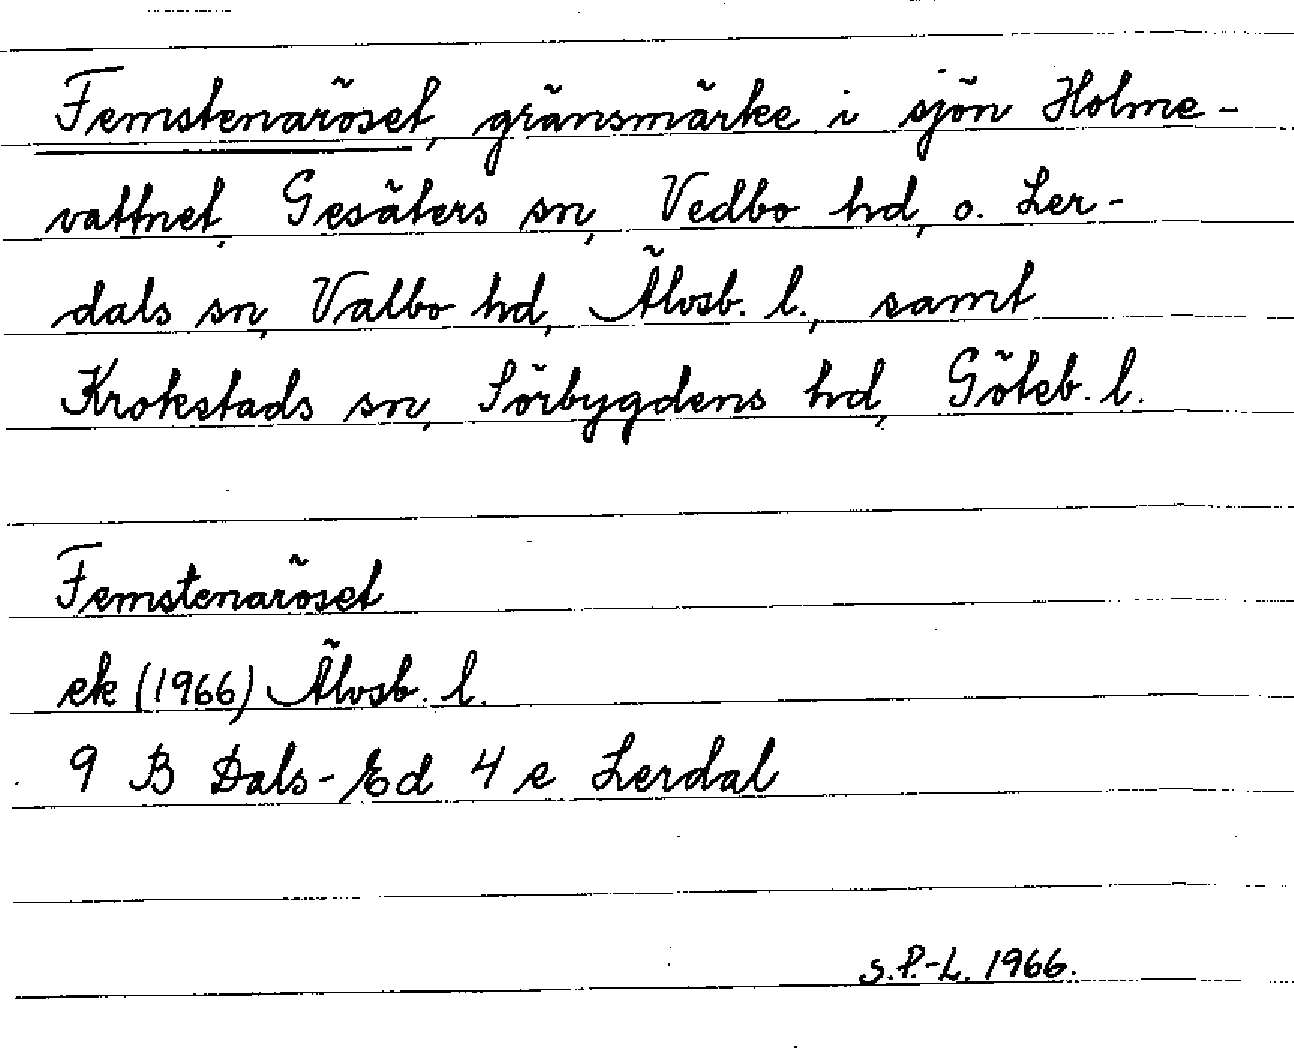 Femstenaröset, gränsmärke i sjön Holme-
vattnet, Gesäters sn, Vedbo hd, o. Ler-
dals sn, Valbo hd, Älvsb. l., samt
Krokstads sn, Sörbygdens hd, Göteb. l.
Femstenaröset
ek (1966) Älvsb. l.
9 B Dals-Ed 4 e Lerdal
S.P.-L. 1966.